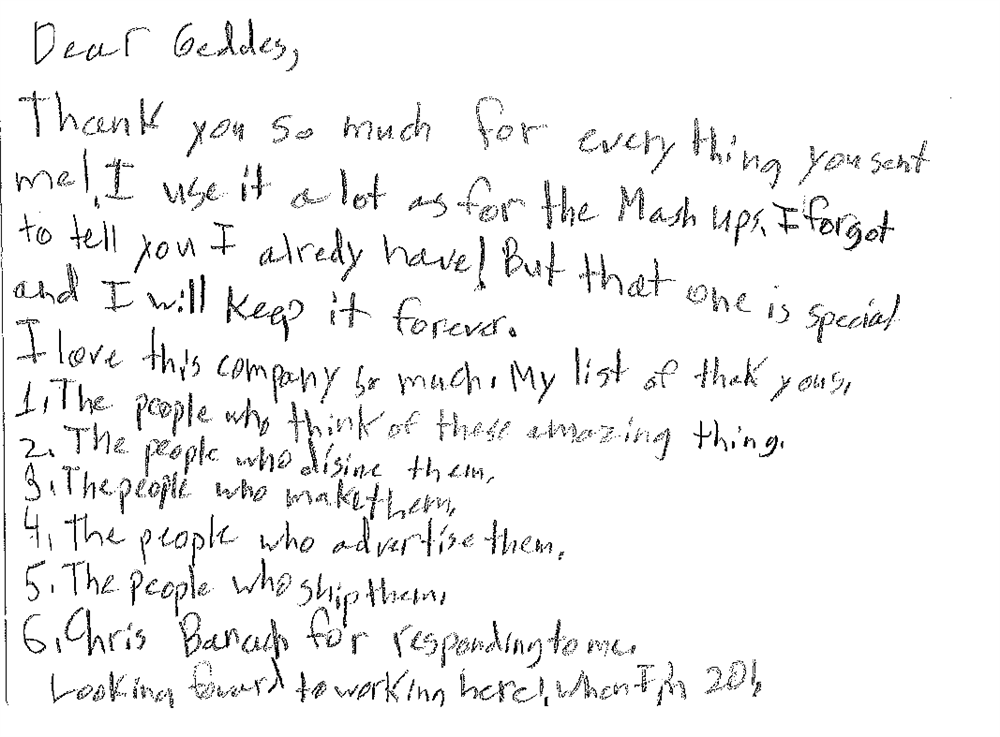 Dear Geddes,
Thank you so much for every thing you sent
me!, I use it a lot as for the Mash ups. I forgot
to tell you I alredy have! But that one is special
and I will keep it forever.
I love this company so much. My list of thak yous,
1. The people who think of these amazing thing.
2. The people who disine them,
3. The people who make them,
4. The people who advertise them,
5. The people who ship them,
6. Chris Banach for responding to me.
Looking foward to working here!, when I'm 20!,